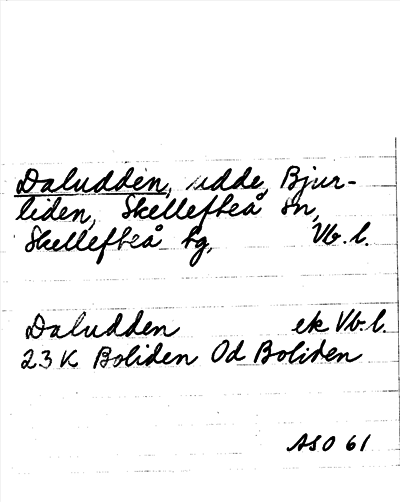 Daludden, udde, Bjur-
liden, Skellefteå sn,
Skellefteå tg, Vb. l.
Daludden ek Vb. l.
23 K Boliden Od Boliden
ASO 61